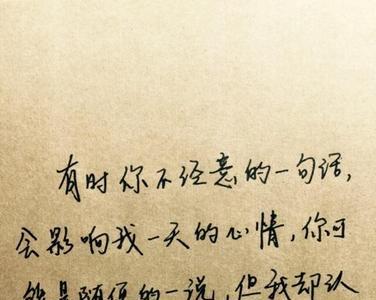 有时你不经意的一句话,
会影响我一天的心情,你可
能是随便的一说,但我却认